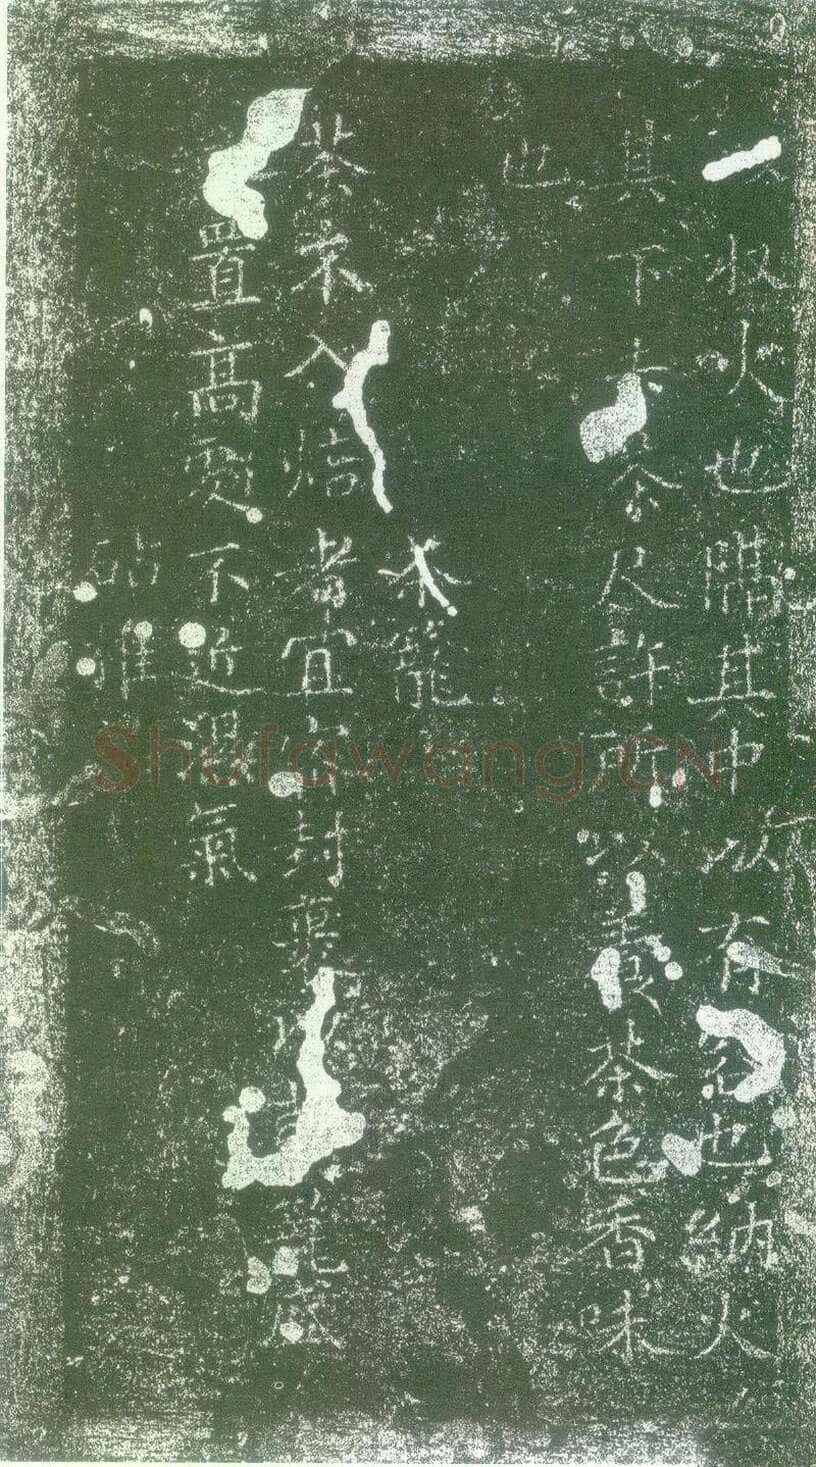 収火也隔其中以有容也納火
其下去茶尺許所以養茶色香味
也
茶籠
茶不入焙者宜密封裹籠盛
置高處不近濕氣
砧椎
Shufawang.CN